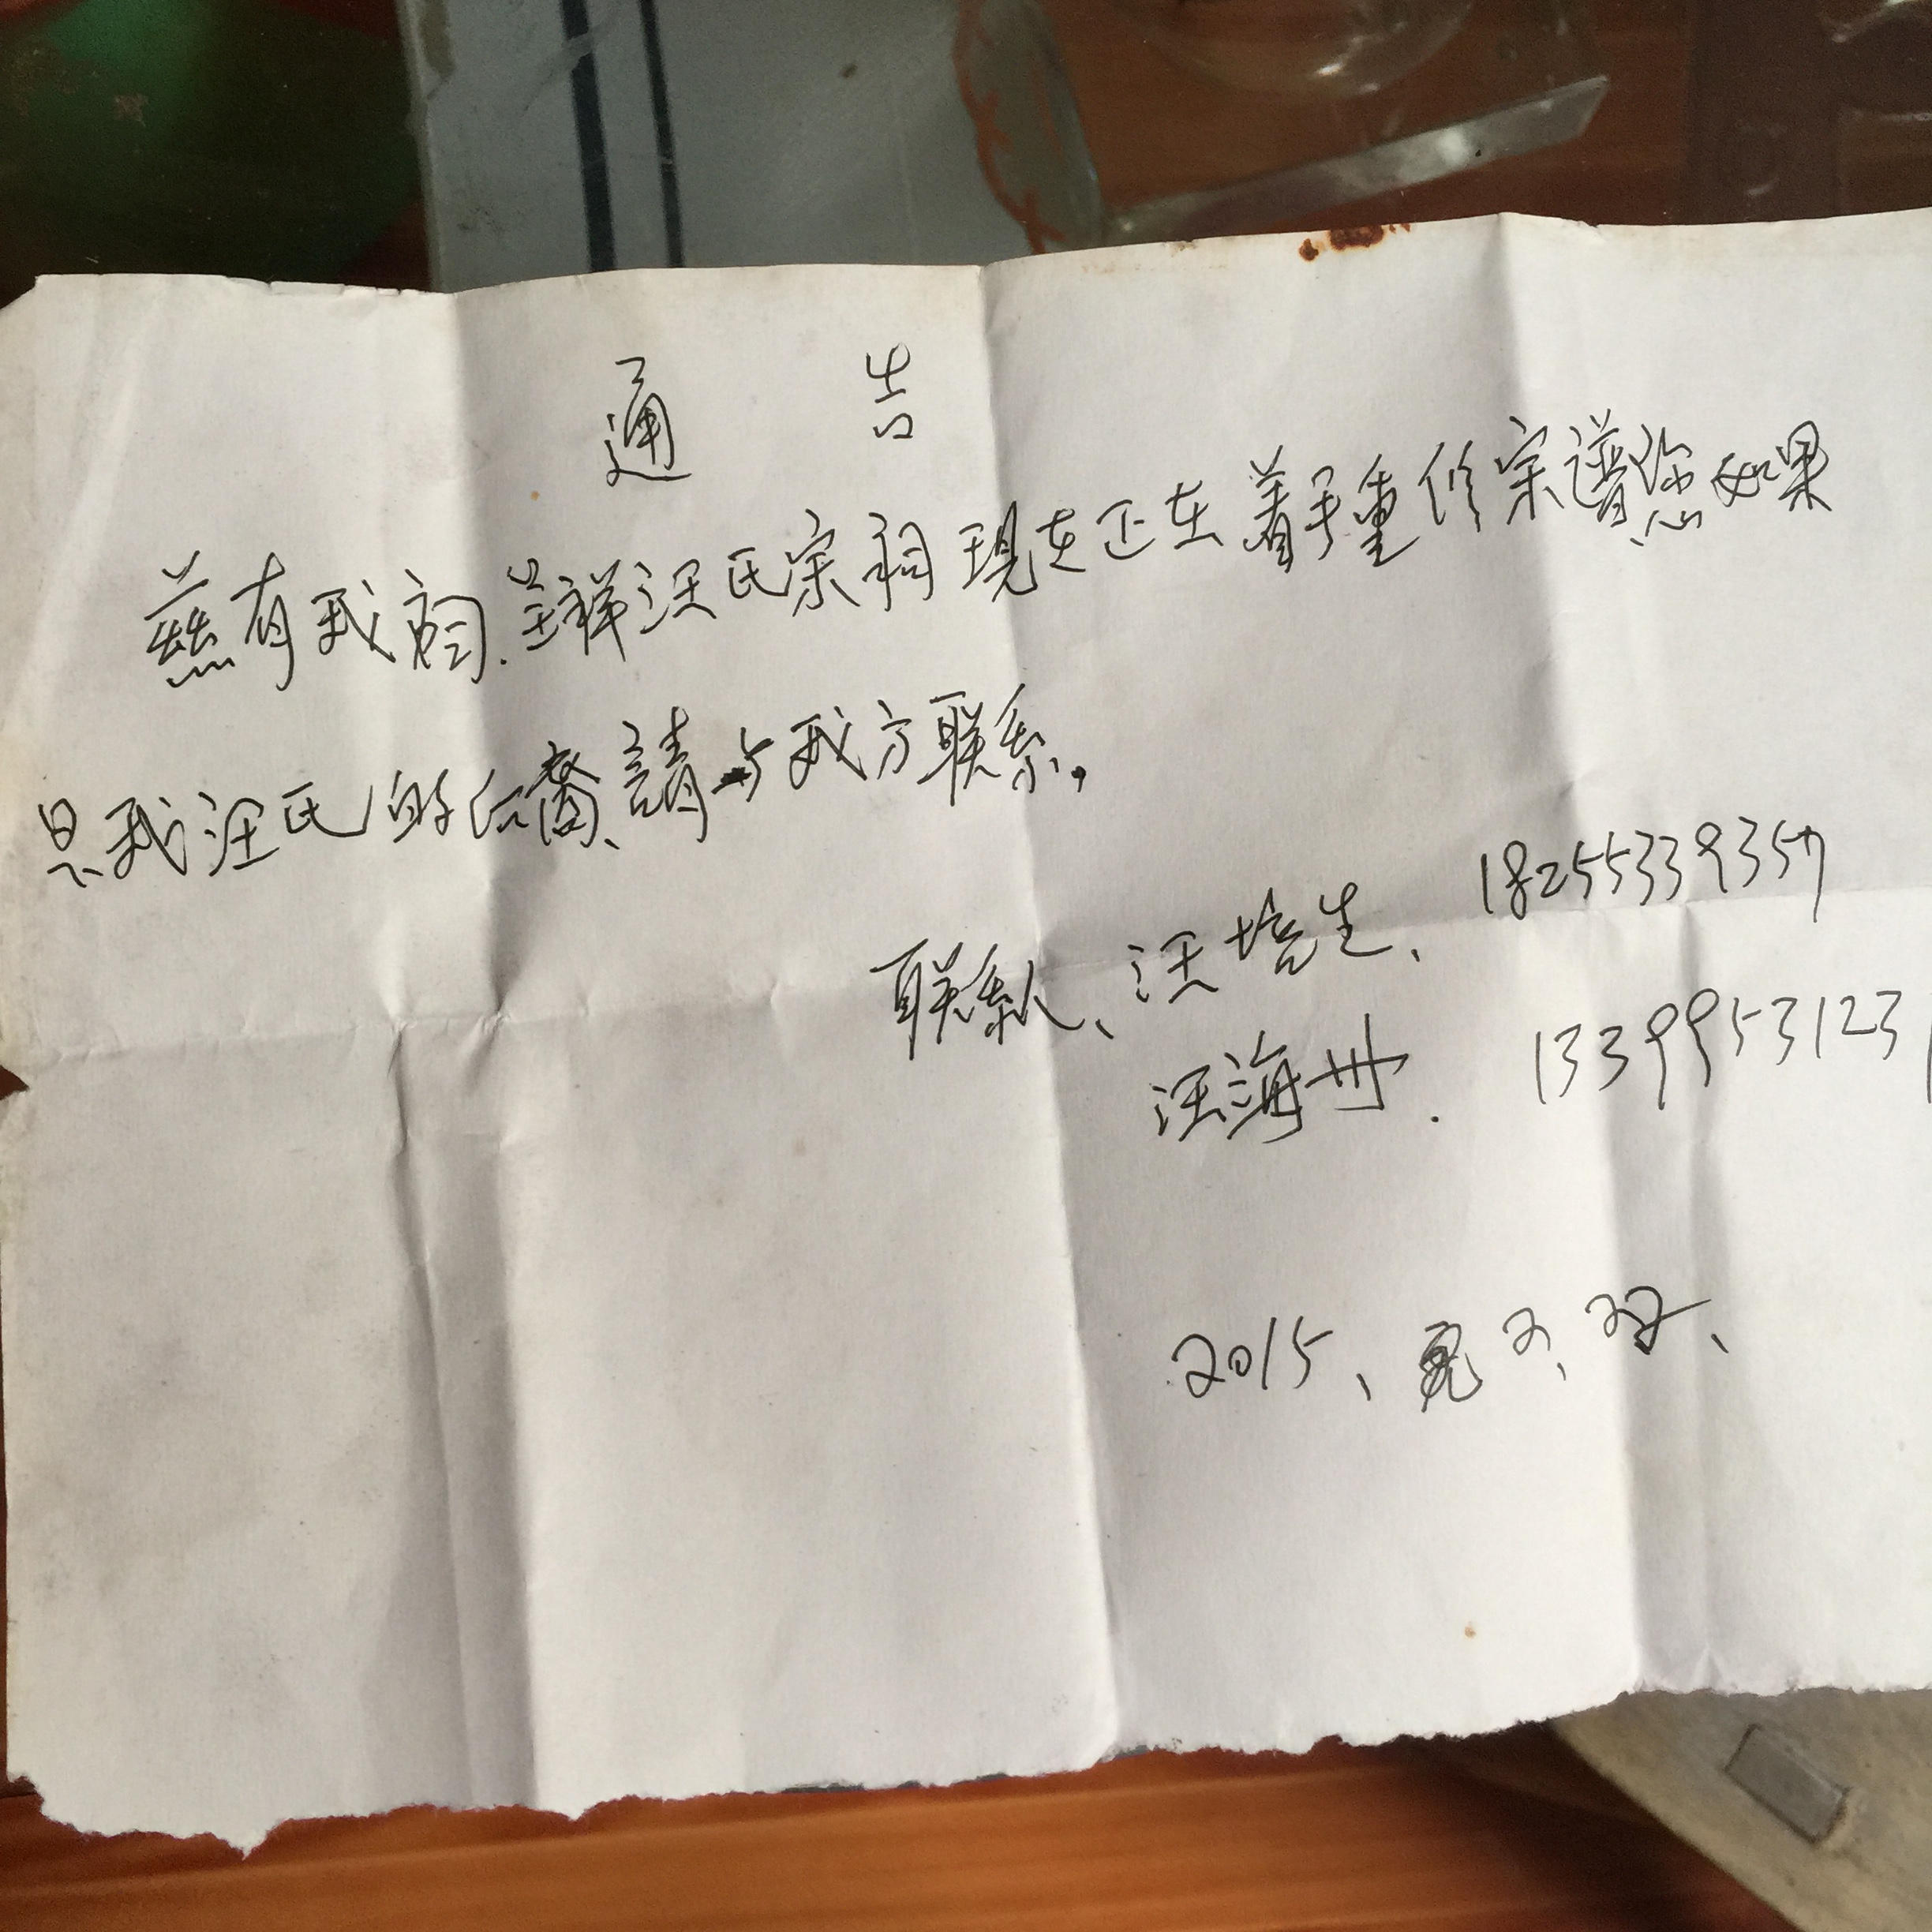 通 告
兹有我祠.呈祥汪氏宗祠现在正在着手重修宗譜您如果
是我汪氏的后裔、請与我方联系。
联系人、汪培生、18255339357
汪海州. 13399953123
2015、